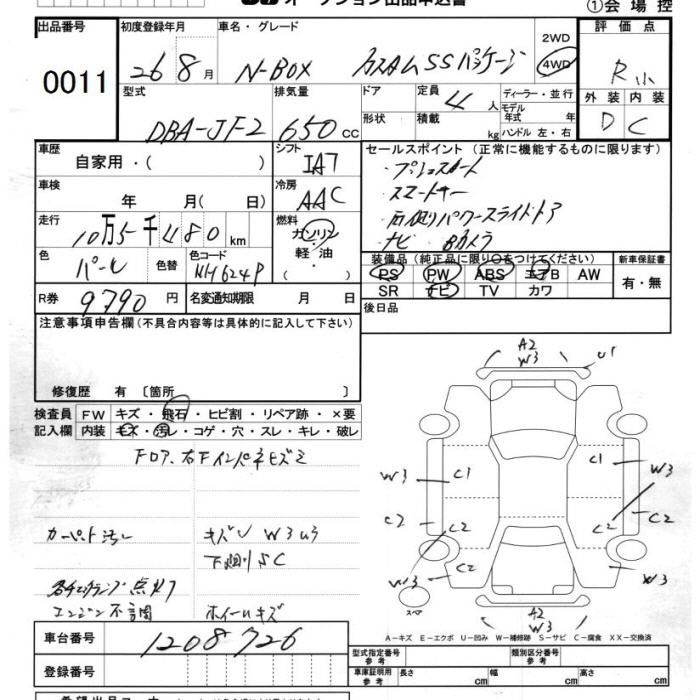 オークション出品申込書
①会場控
出品番号 初度登録年月 車名・グレード 評価点
0011
26 8月 N-BOX カスタムSSパッケージ
2WD
4WD
R
型式 排気量 ドア 定員 4人 ディーラー・並行
外装 内装
DBA-JF2 650cc
形状 積載 kg
モデル年式 年
ハンドル 左・右
D C
車歴 自家用・( )
シフト IA7
セールスポイント(正常に機能するものに限ります)
・プッシュスタート
・スマートキー
・両側パワースライドドア
・ナビ Bカメラ
車検 年 月( 日)
冷房 AAC
走行 10万5千480km
燃料 ガソリン・軽油・
色 パール 色替 色コード NH624P
装備品(純正品に限り○をつけてください) 新車保証書
PS PW ABS エアB AW
SR ナビ TV カワ
有・無
R券 9790円 名変通知期限 月 日
後日品
注意事項申告欄(不具合内容等は具体的に記入して下さい)
修復歴 有〔箇所 〕
検査員 FW キズ・飛石・ヒビ割・リペア跡・×要
記入欄 内装 キズ・汚レ・コゲ・穴・スレ・キレ・破レ
カーペット汚レ
キズU W3U3
下廻りSC
エンジン不調
ホイールキズ
A2
W3
U1
W3 C1 C1 W3
C2 C2 C2
C2
W3 C2 W3
スペア
A2
W3
A－キズ E－エクボ U－凹み W－補修跡 S－サビ C－腐食 XX－交換済
車台番号 1208726
登録番号
型式指定番号 参考 類別区分番号 参考
車庫証明用 参考 長さ cm 幅 cm 高さ cm